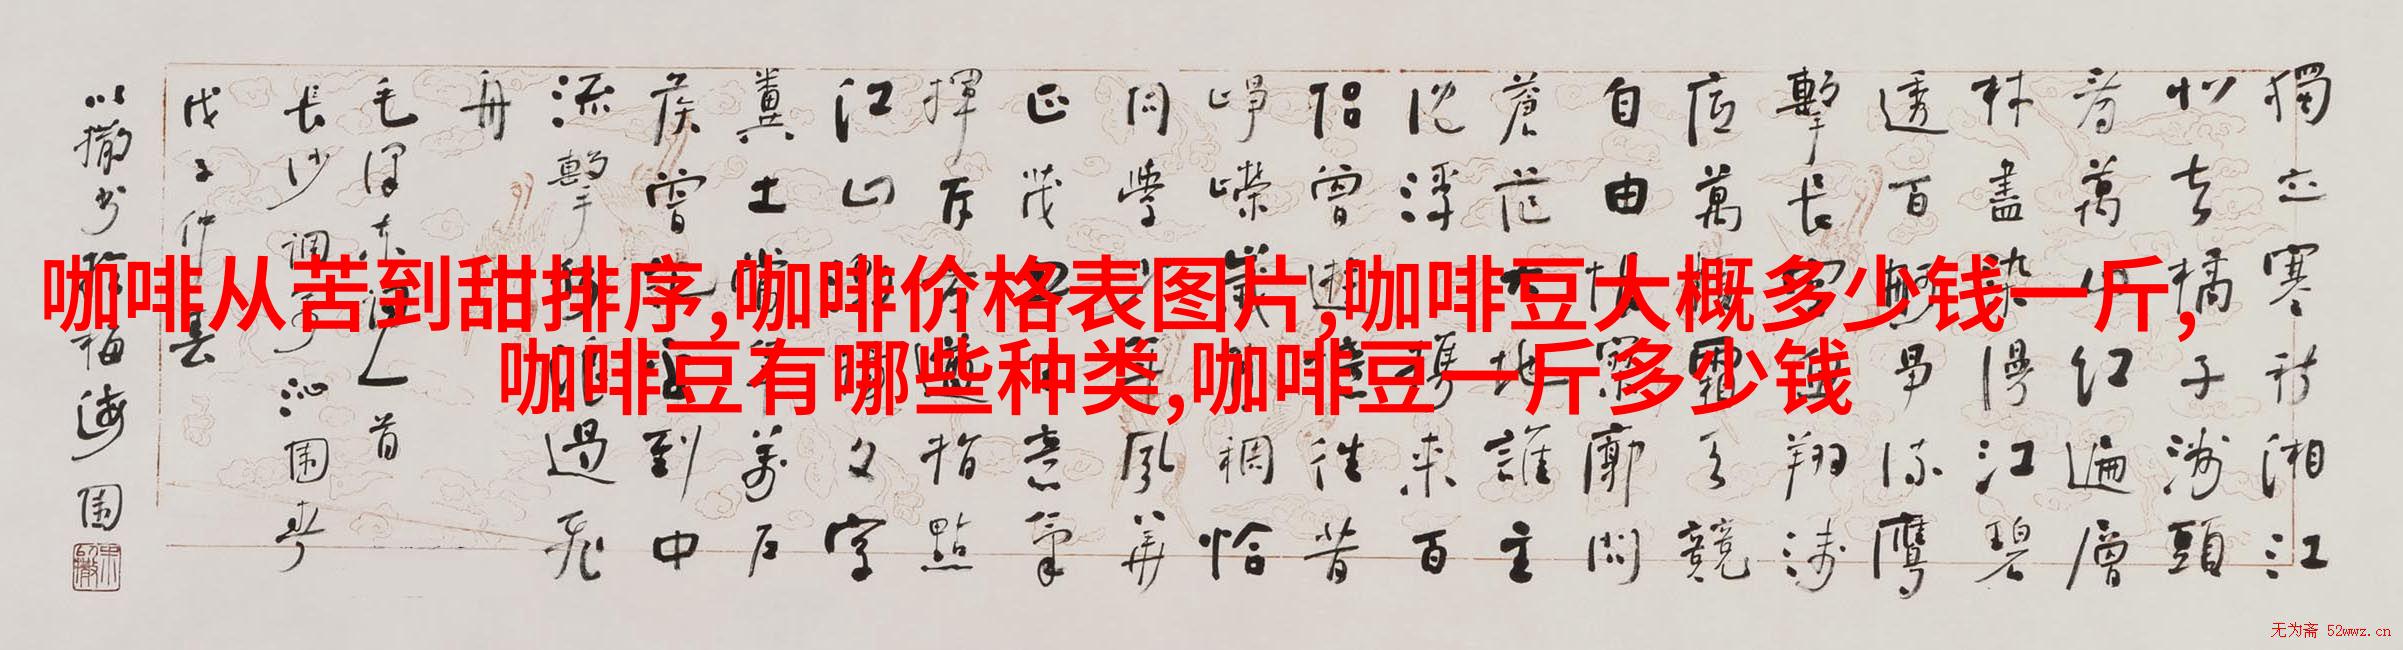 咖啡从苦到甜排序,咖啡价格表图片,咖啡豆大概多少钱一斤,
咖啡豆有哪些种类,咖啡豆一斤多少钱
獨立寒秋湘江
北去橘子洲頭
看萬山紅遍層
林盡染漫江碧
透百舸爭流鷹
擊長空魚翔淺
底萬類霜天競
自由悵寥廓問
蒼茫大地誰主
沈浮携来百
侶曾遊憶往昔
崢嶸歲月稠恰
同學少年風華
正茂書生意氣
揮斥方遒指點
江山激揚文字
糞土當年萬戶
侯曾記否到中
流擊水浪遏飛
舟
毛澤東詞一首
長沙调寄沁園春
戊子仲春
以撒書於福海園
无为斋 52wwz.cn